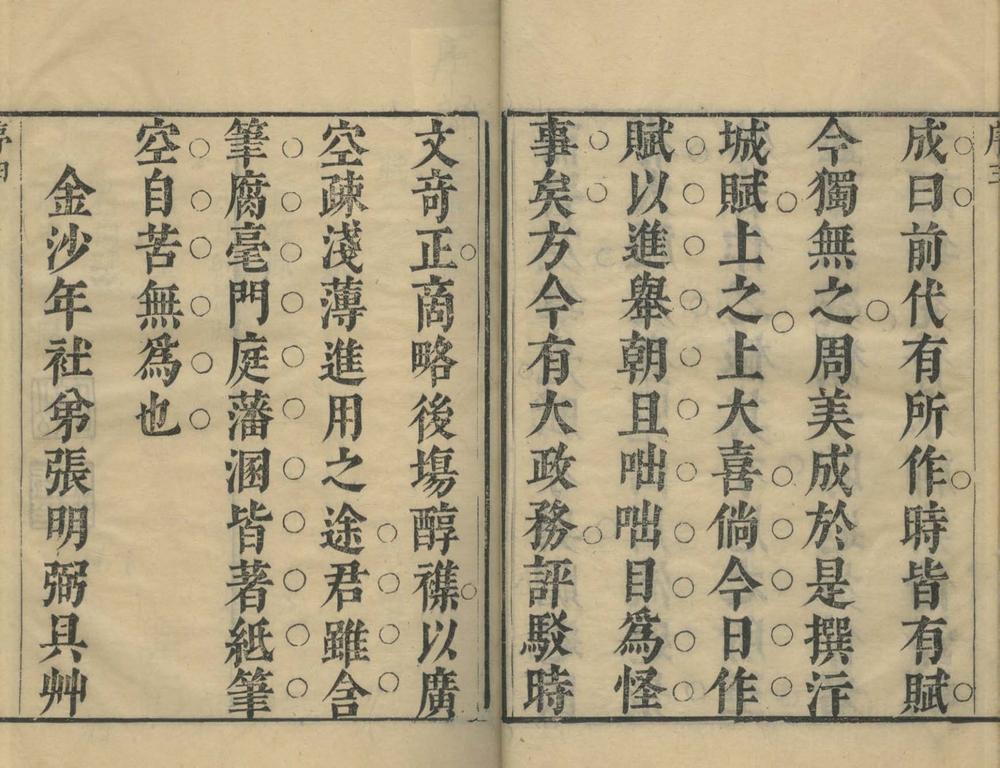 成曰前代有所作時皆有賦
今獨無之周美成於是撰汴
城賦上之上大喜倘今日作
賦以進舉朝且咄咄目爲怪
事矣方今有大政務評駁時
文竒正商略後塲醇襍以廣
空疎淺薄進用之途君雖含
筆腐毫門庭藩溷皆著紙筆
空自苦無爲也
金沙年社弟張明弼具艸